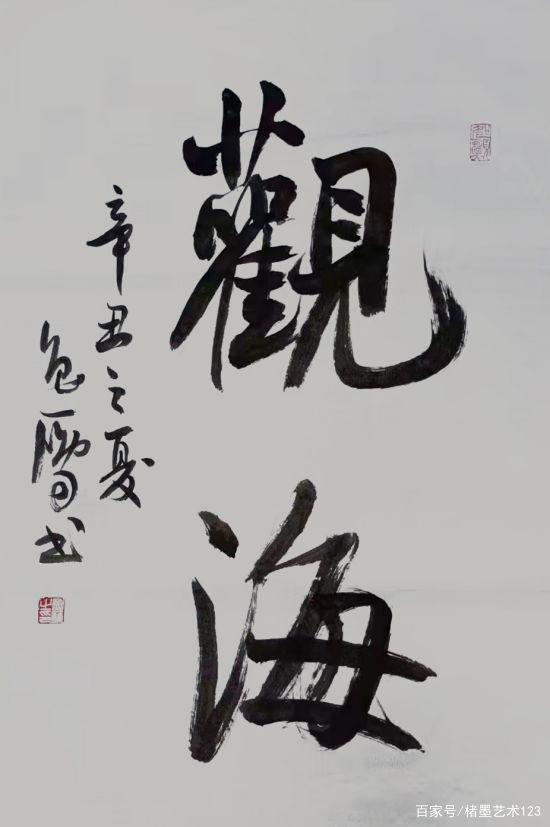 觀海
辛丑之夏
书
百家号/楮墨艺术123